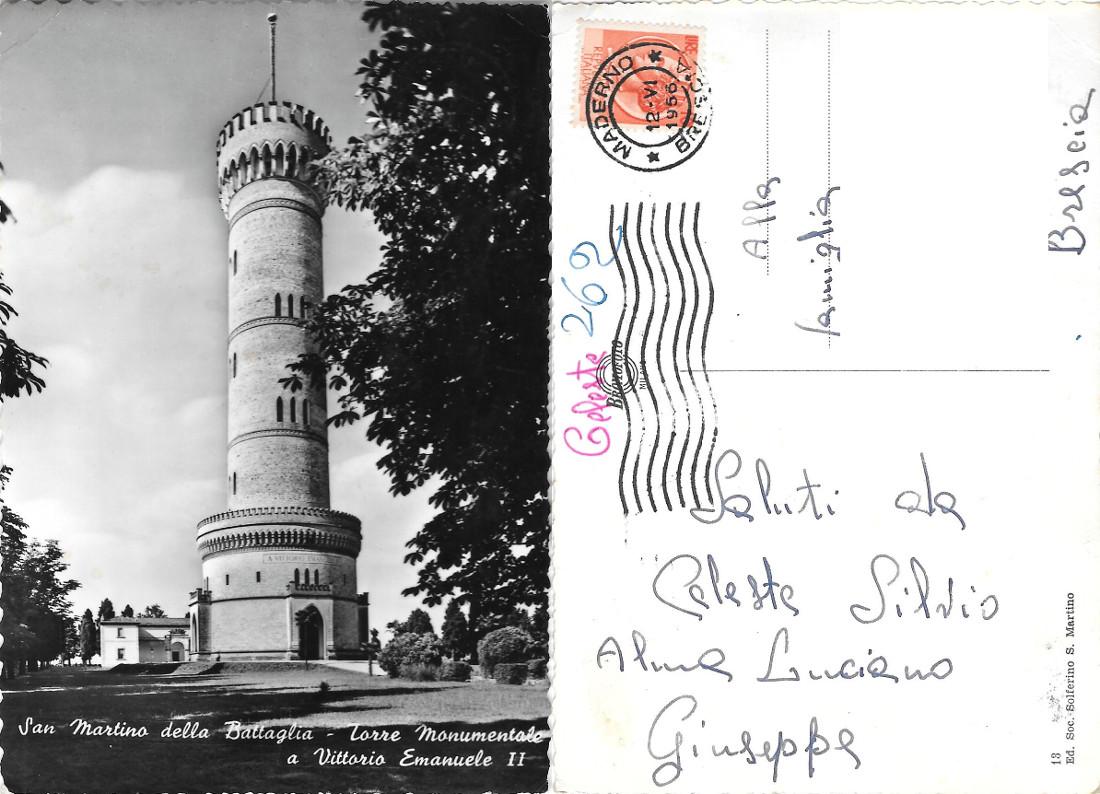 San Martino della Battaglia - Torre Monumentale
a Vittorio Emanuele II
LIRE
REPUBBLICA
ITALIANA
MADERNO
12-VI
1956
BRESCIA
Alla
famiglia
Brescia
262
Celeste
Bromofoto
MILANO
Saluti da
Celeste Silvio
Alma Luciano
Giuseppe
13
Ed. Soc. Solferino S. Martino